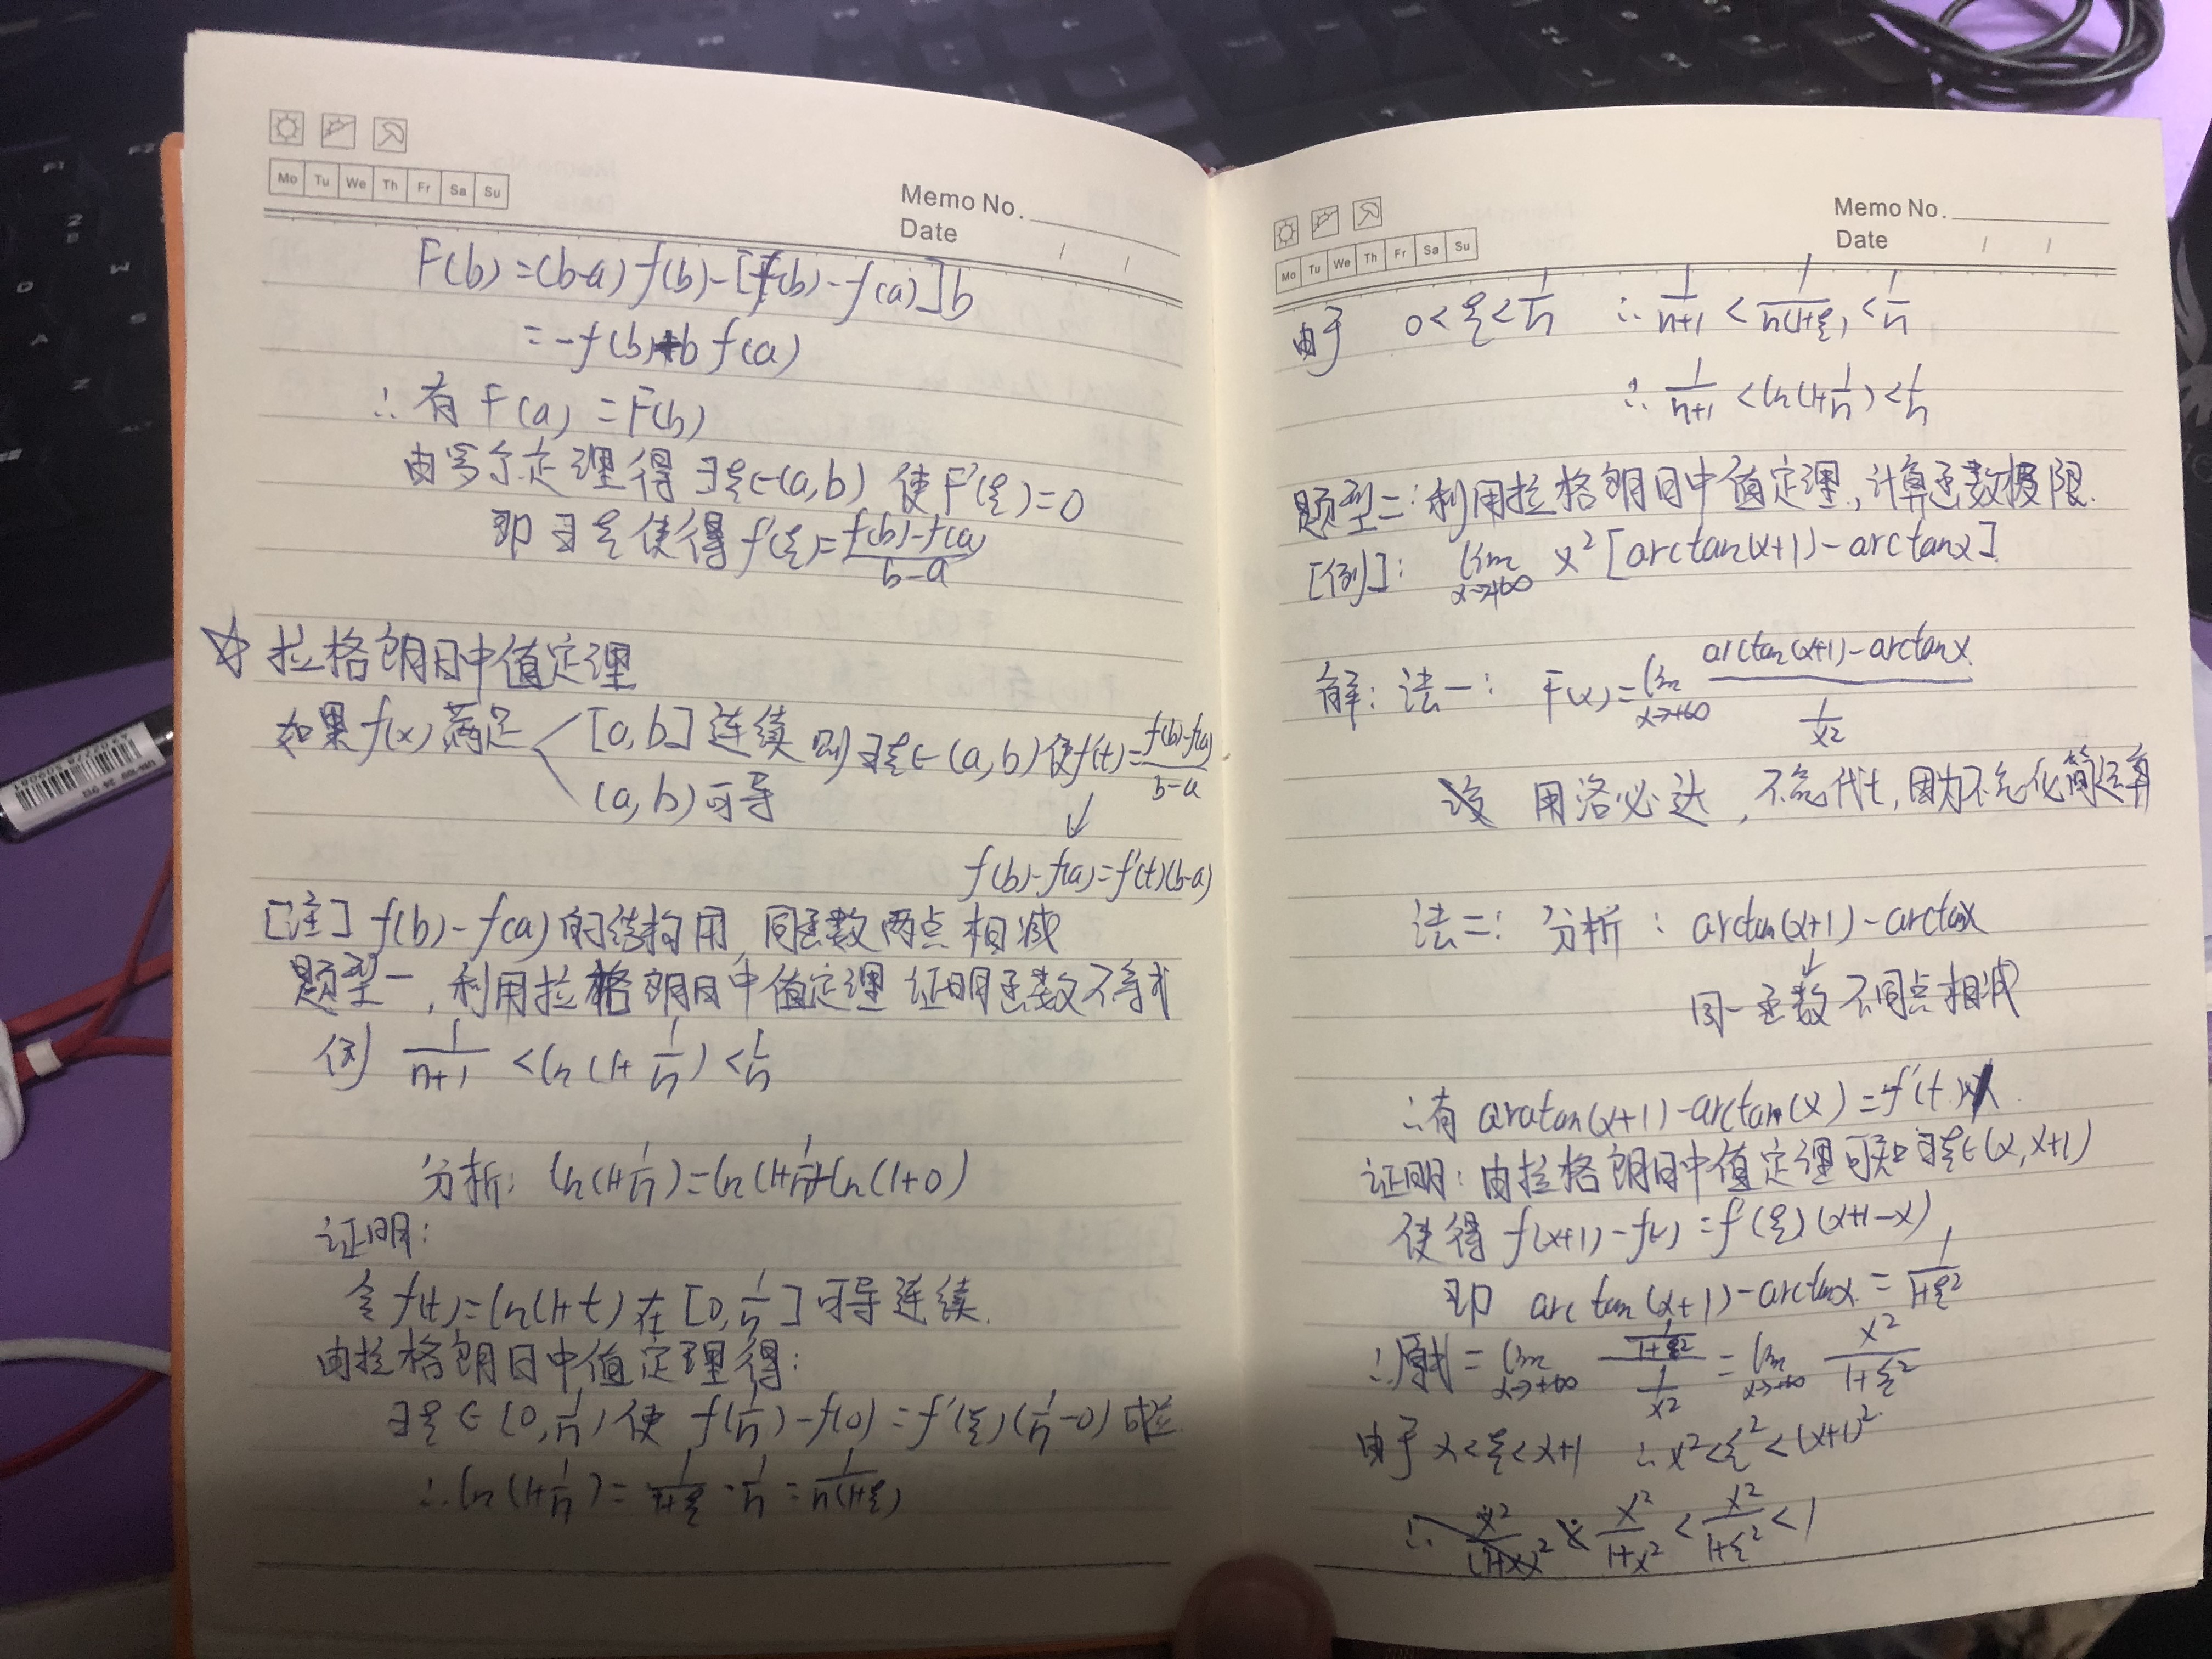 Mo Tu We Th Fr Sa Su
Memo No.
Date / /
F(b)=(b-a)f(b)-[f(b)-f(a)]b
=-f(b)+bf(a)
∴有F(a)=F(b)
由罗尔定理得∃ξ∈(a,b) 使F'(ξ)=0
即∃ξ使得f'(ξ)=\frac{f(b)-f(a)}{b-a}
☆拉格朗日中值定理
如果f(x)满足 [a,b]连续 则∃ξ∈(a,b)使f'(t)=\frac{f(b)-f(a)}{b-a}
(a,b)可导
↓
f(b)-f(a)=f'(t)(b-a)
[注] f(b)-f(a)的结构用,同函数两点相减
题型一,利用拉格朗日中值定理证明函数不等式
例 \frac{1}{n+1}<ln(1+\frac{1}{n})<\frac{1}{n}
分析: ln(1+\frac{1}{n})=ln(1+\frac{1}{n})-ln(1+0)
证明:
令f(t)=ln(1+t)在[0,\frac{1}{n}]可导连续.
由拉格朗日中值定理得:
∃ξ∈(0,\frac{1}{n})使 f(\frac{1}{n})-f(0)=f'(ξ)(\frac{1}{n}-0)成立
∴ln(1+\frac{1}{n})=\frac{1}{1+ξ}·\frac{1}{n}=\frac{1}{n(1+ξ)}
Mo Tu We Th Fr Sa Su
Memo No.
Date / /
由于 0<ξ<\frac{1}{n} ∴\frac{1}{n+1}<\frac{1}{n(1+ξ)}<\frac{1}{n}
∴\frac{1}{n+1}<ln(1+\frac{1}{n})<\frac{1}{n}
题型二:利用拉格朗日中值定理,计算函数极限.
[例]: \lim_{x→+∞} x²[arctan(x+1)-arctanx]
解:法一: F(x)=\lim_{x→+∞}\frac{arctan(x+1)-arctanx}{\frac{1}{x²}}
用洛必达,不宜,因为不宜化简运算
法二:分析:arctan(x+1)-arctanx
↓
同一函数不同点相减
∴有 arctan(x+1)-arctan(x)=f'(t)
证明:由拉格朗日中值定理可知∃ξ∈(x,x+1)
使得f(x+1)-f(x)=f'(ξ)(x+1-x)
即 arctan(x+1)-arctanx=\frac{1}{1+ξ²}
∴原式=\lim_{x→+∞}\frac{\frac{1}{1+ξ²}}{\frac{1}{x²}}=\lim_{x→+∞}\frac{x²}{1+ξ²}
由于x<ξ<x+1 ∴x²<ξ²<(x+1)²
∴ \frac{x²}{1+x²}<\frac{x²}{1+ξ²}<1